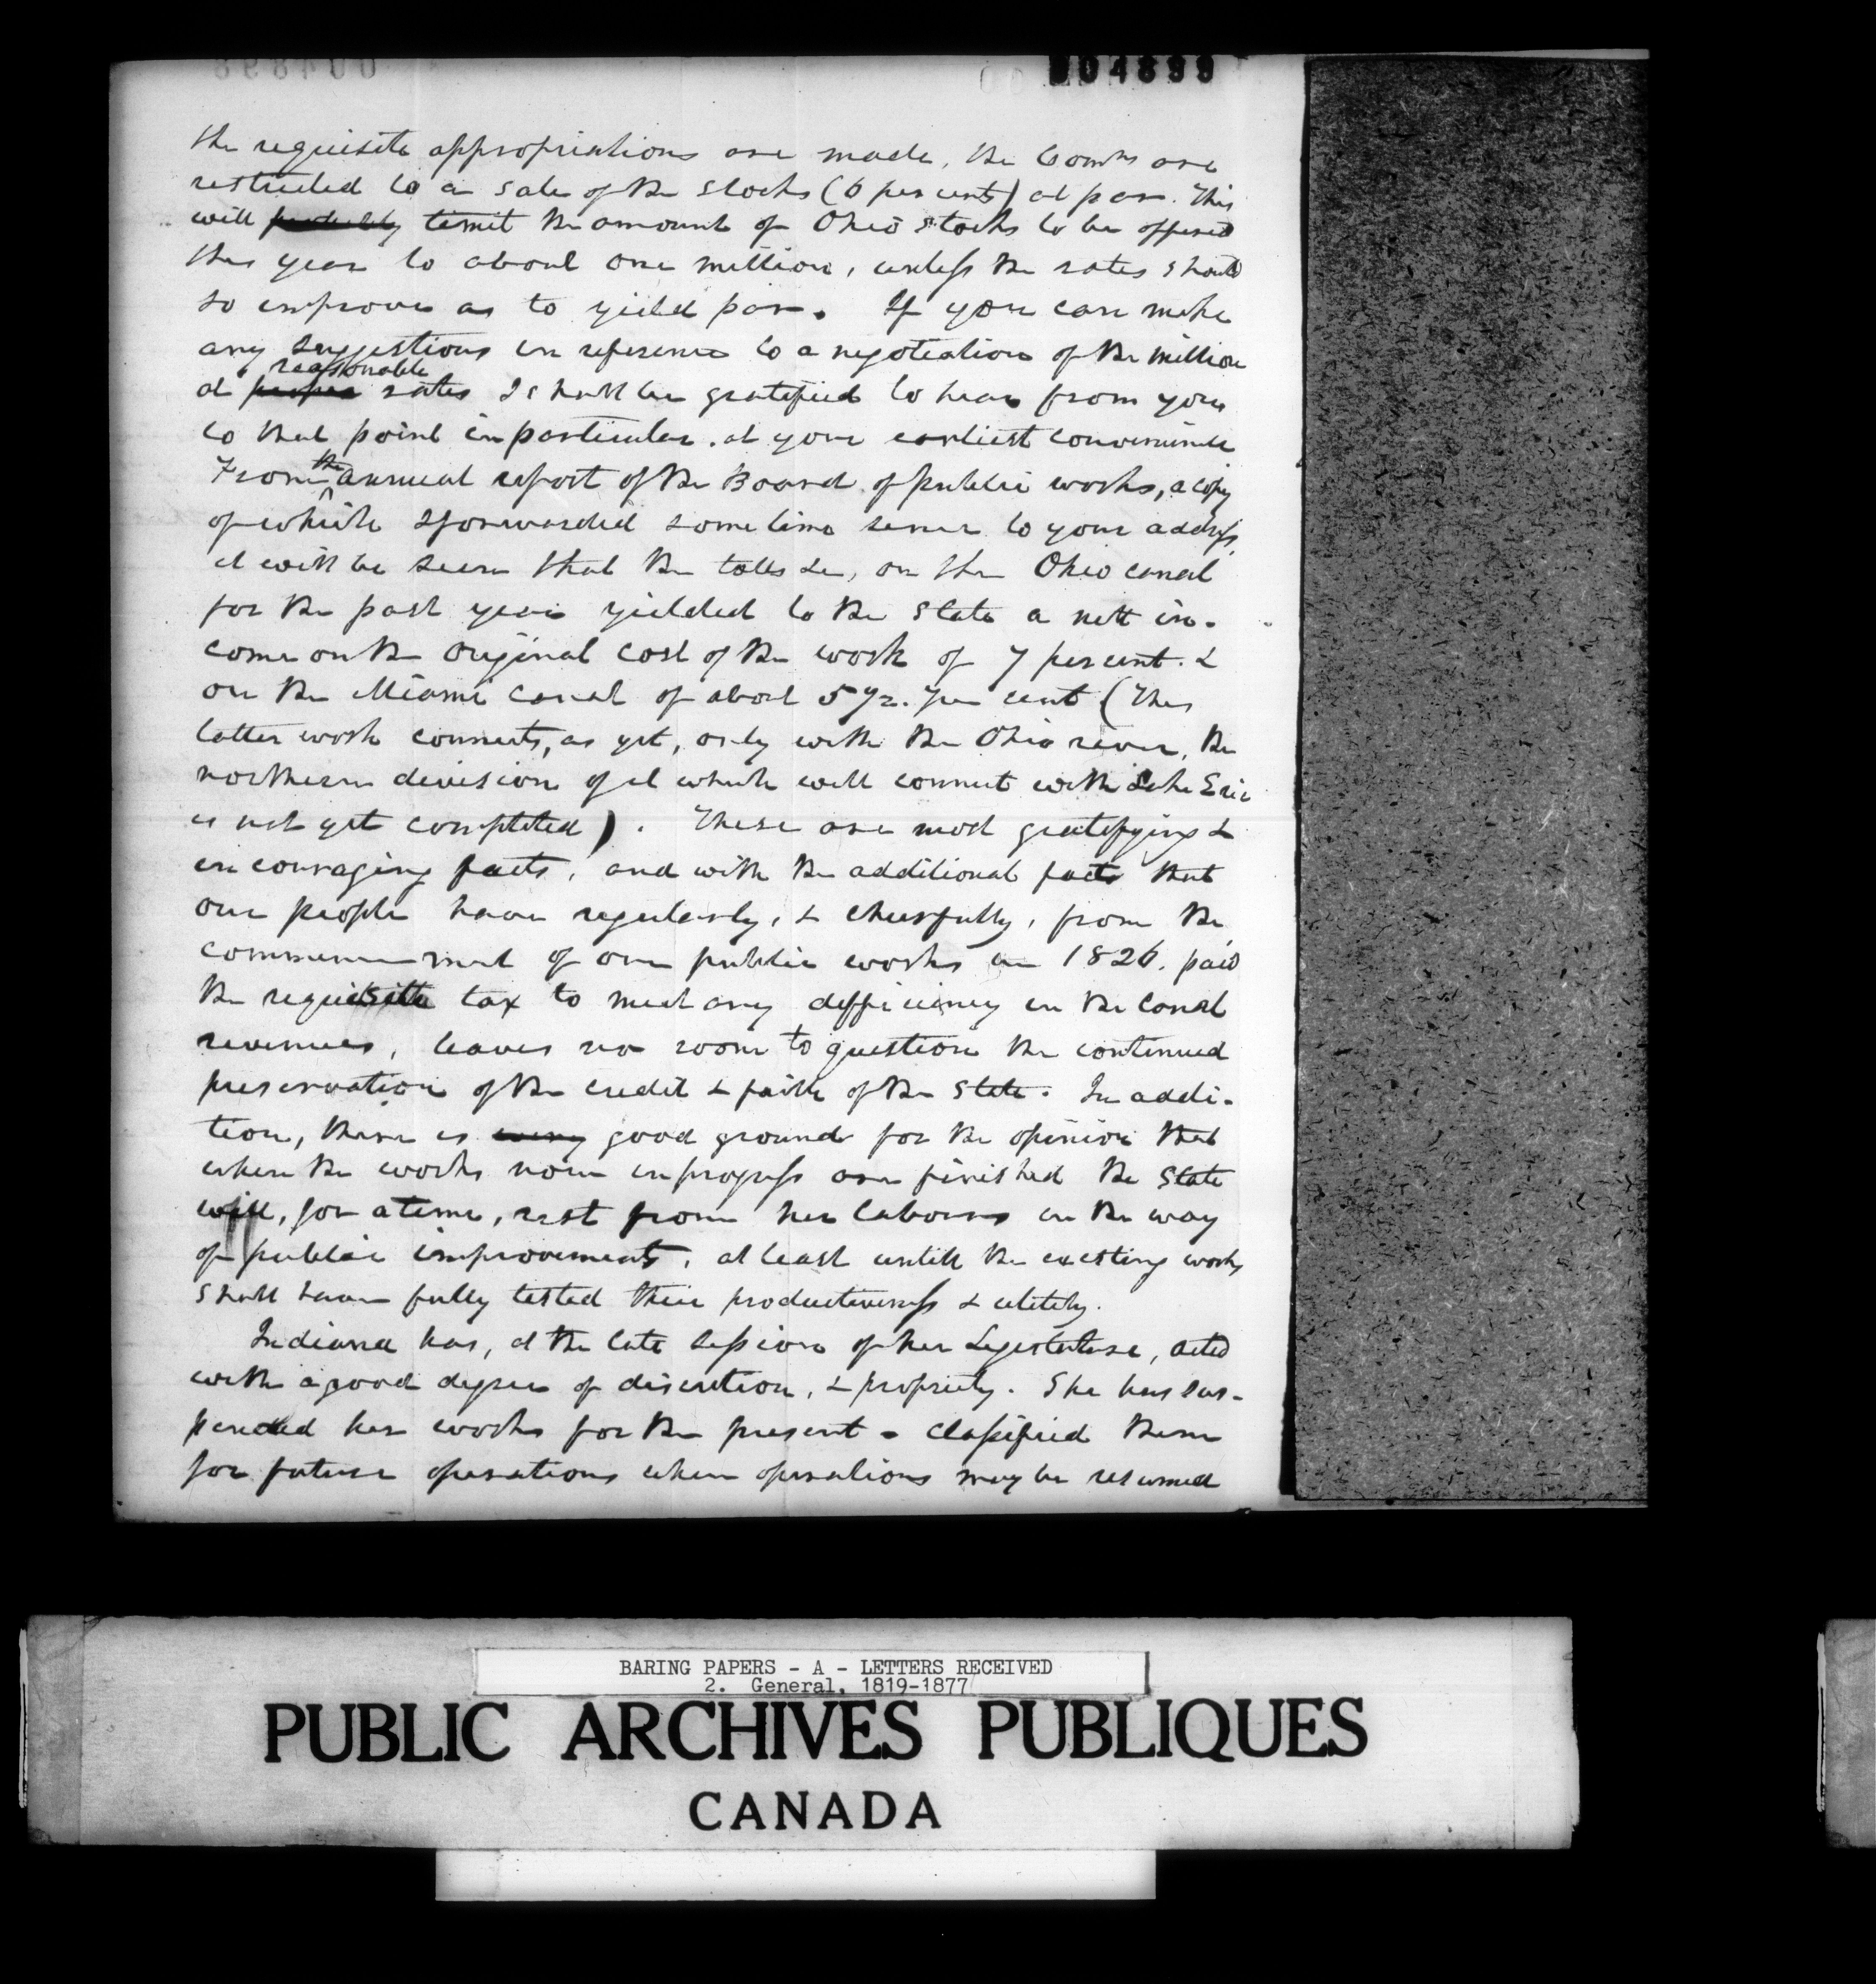 004899
the requisite appropriations are made, the Comrs are
restricted to a sale of the stocks (6 per cents) at par. This
will probably limit the amount of Ohio stocks to be offered
this year to about one million, unless the rates should
so improve as to yield par. If you can make
any suggestions in reference to a negotiation of the million
reasonable
at proper rates I shall be gratified to hear from you
to that point in particular. at your earliest convenience
From the annual report of the Board of public works, a copy
of which I forwarded some time since to your address,
it will be seen that the tolls &c, on the Ohio canal
for the past year yielded to the State a nett in-
come on the original cost of the work of 7 per cent. &
on the Miami canal of about 5 1/2. per cent (This
latter work connects, as yet, only with the Ohio river, the
northern division of it which will connect with Lake Erie
is not yet completed). These are most gratifying &
encouraging facts, and with the additional facts that
our people have regularly, & cheerfully, from the
commencement of our public works in 1826. paid
the requisite tax to meet any defficiency in the canal
revenues, leaves no room to question the continued
preservation of the credit & faith of the State. In addi-
tion, there is every good ground for the opinion that
when the works now in progress are finished the State
will, for a time, rest from her labours in the way
of public improvements, at least untill the existing works
shall have fully tested their productiveness & utility.
Indiana has, at the late session of her Legislature, acted
with a good degree of discretion, & propriety. She has sus-
pended her works for the present - classified them
for future operations when operations may be resumed
BARING PAPERS - A - LETTERS RECEIVED
2. General, 1819-1877
PUBLIC ARCHIVES PUBLIQUES
CANADA